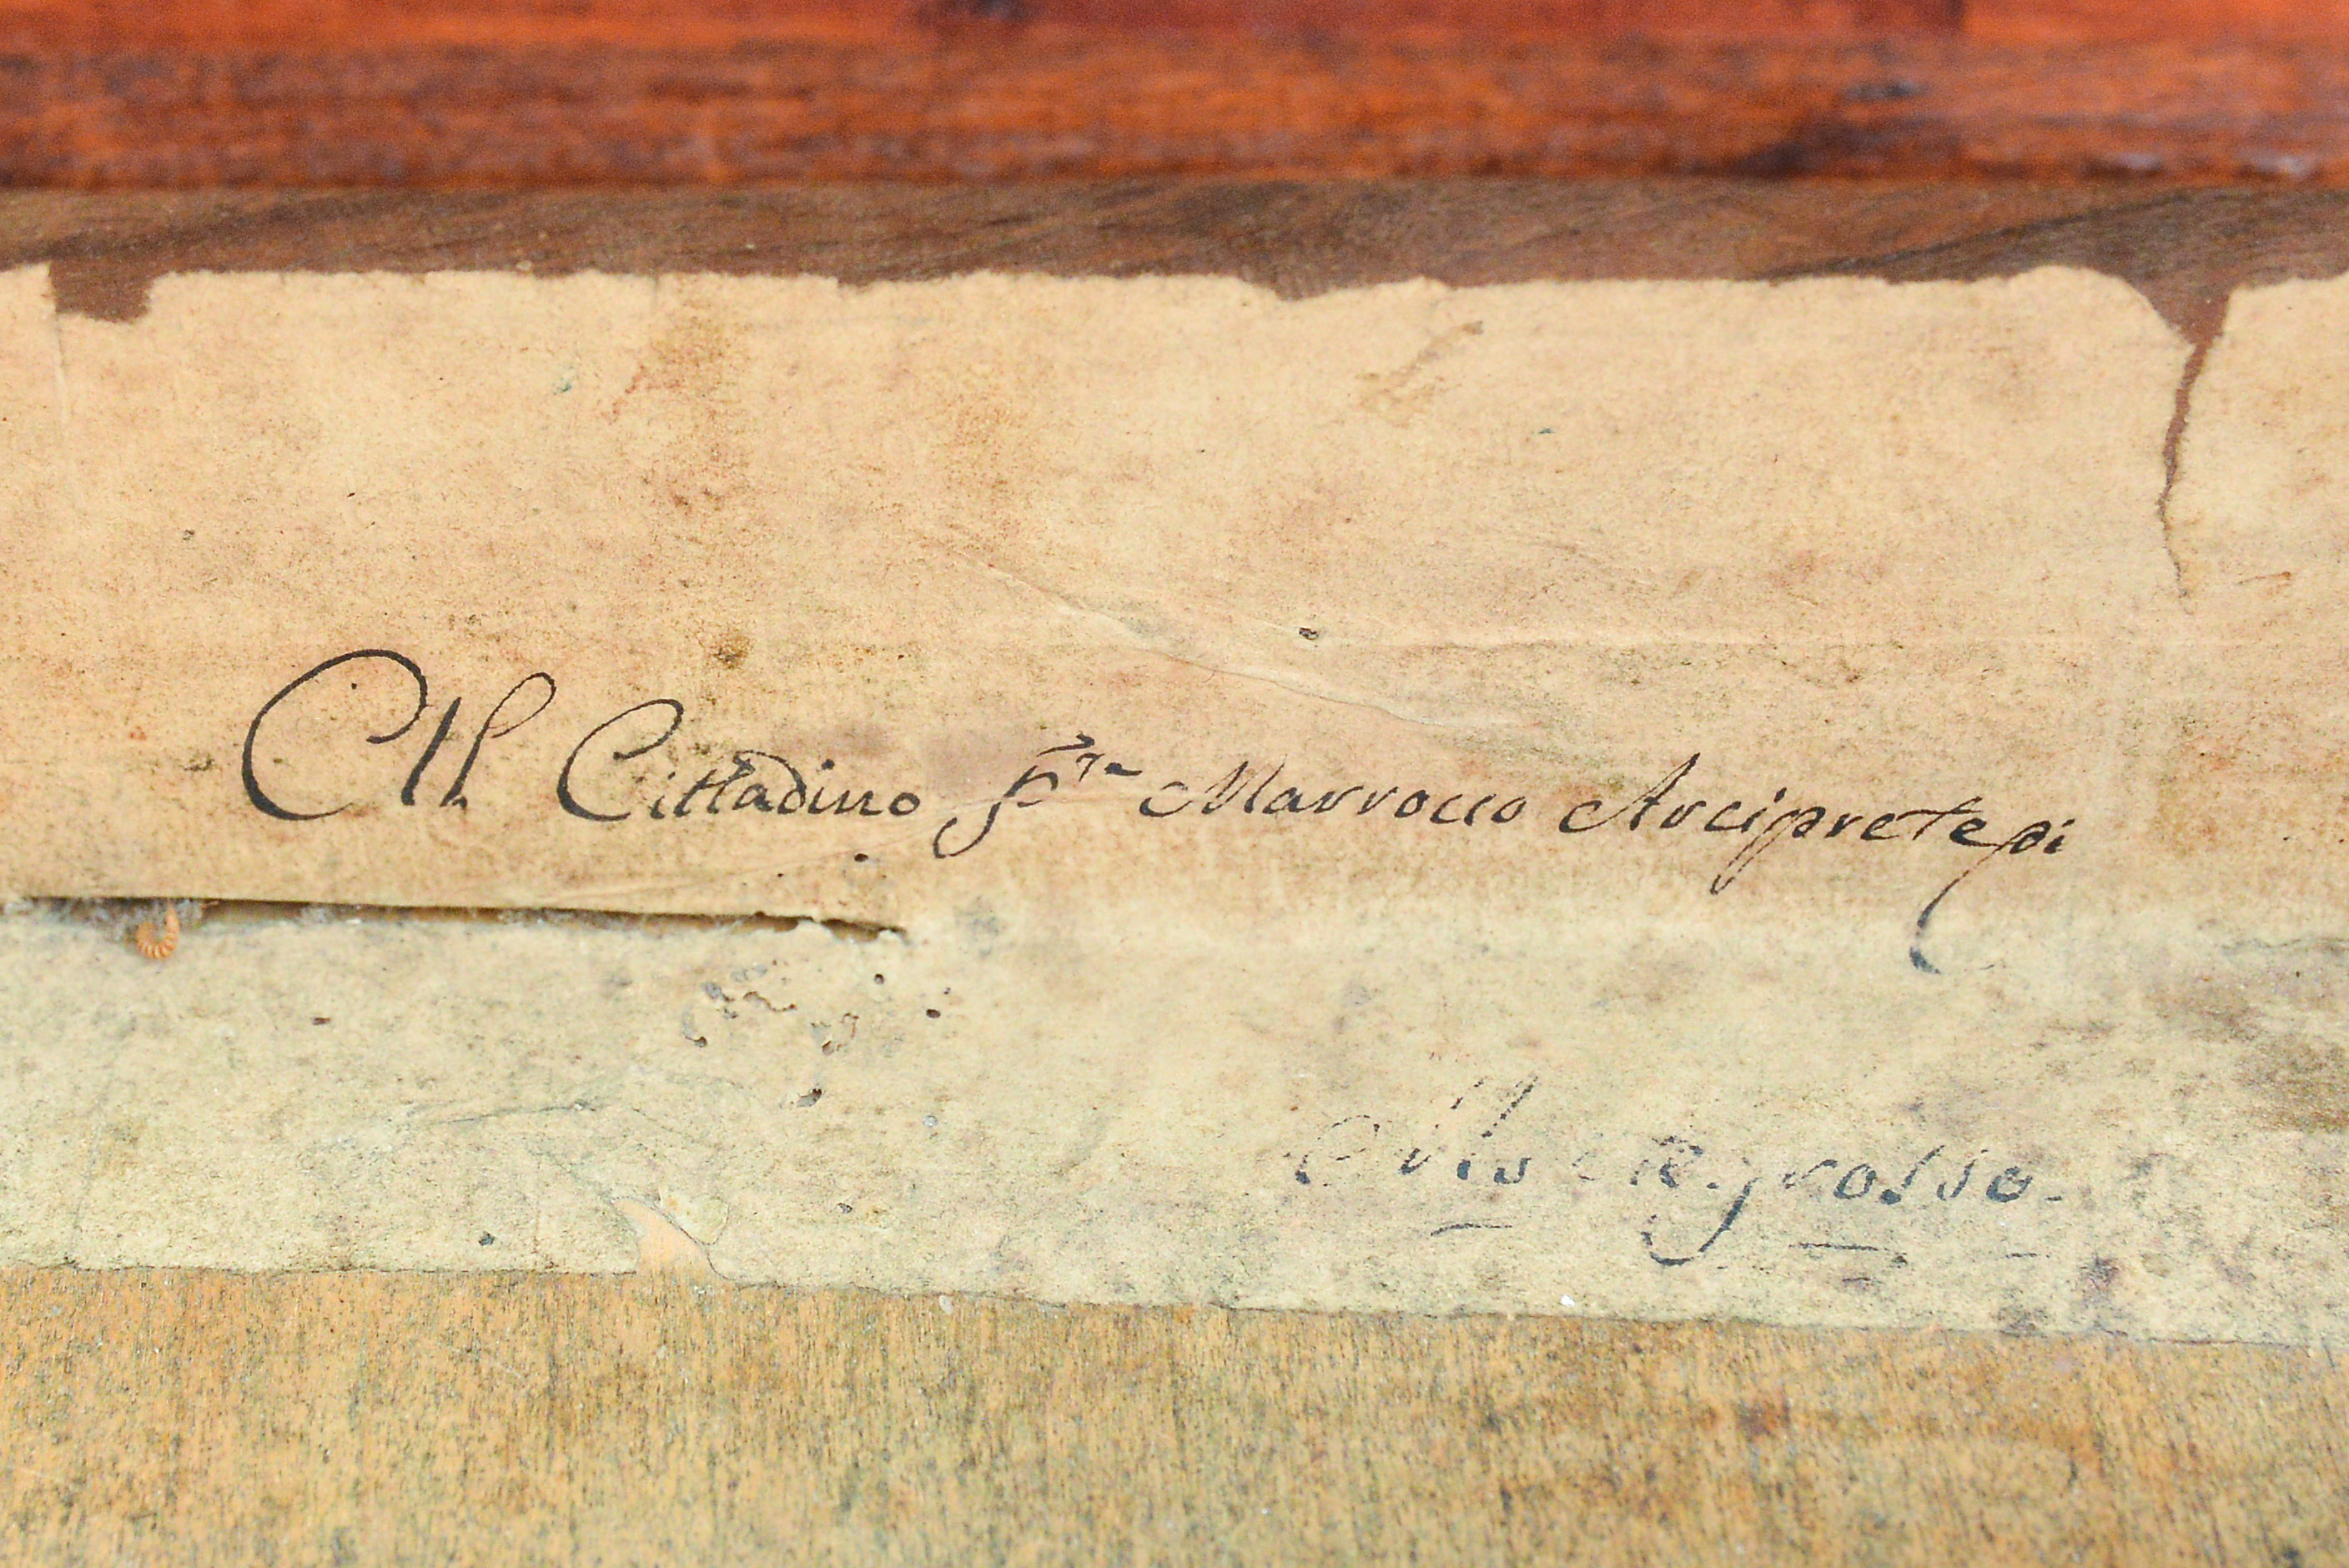 Al Cittadino Fr Marrocco Arciprete di
grosso.